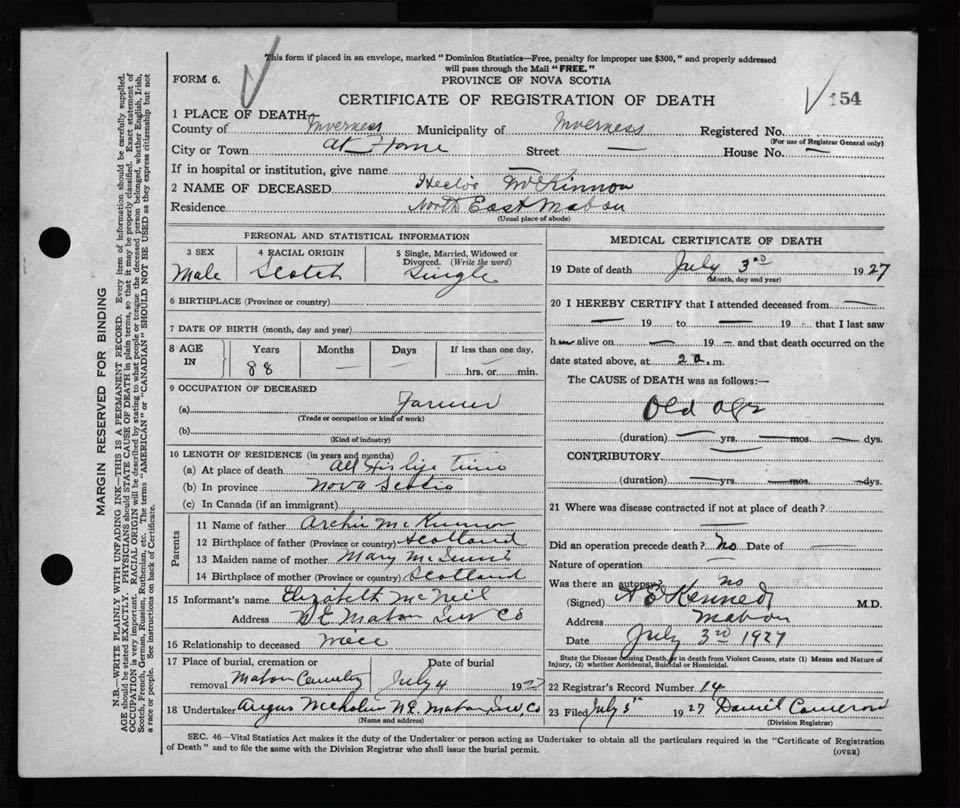 This form if placed in an envelope, marked "Dominion Statistics—Free, penalty for improper use $300," and properly addressed
will pass through the Mail "FREE."
FORM 6.
PROVINCE OF NOVA SCOTIA
CERTIFICATE OF REGISTRATION OF DEATH
154
1 PLACE OF DEATH—
County of Inverness Municipality of Inverness Registered No.
(For use of Registrar General only)
City or Town at Home Street — House No. —
If in hospital or institution, give name —
2 NAME OF DECEASED Hector McKinnon
Residence North East Mabou
(Usual place of abode)
PERSONAL AND STATISTICAL INFORMATION
3 SEX 4 RACIAL ORIGIN 5 Single, Married, Widowed or
Divorced. (Write the word)
Male Scotch Single
6 BIRTHPLACE (Province or country)
7 DATE OF BIRTH (month, day and year)
8 AGE IN Years Months Days If less than one day,
88 — — hrs. or min.
9 OCCUPATION OF DECEASED
(a) Farmer
(Trade or occupation or kind of work)
(b)
(Kind of industry)
10 LENGTH OF RESIDENCE (in years and months)
(a) At place of death All His life time
(b) In province Nova Scotia
(c) In Canada (if an immigrant)
Parents
11 Name of father Archie McKinnon
12 Birthplace of father (Province or country) Scotland
13 Maiden name of mother Mary
14 Birthplace of mother (Province or country) Scotland
15 Informant's name Elizabeth McNeil
Address N E Mabou Inv Co
16 Relationship to deceased niece
17 Place of burial, cremation or Date of burial
removal Mabou Cemetery July 4 1927
18 Undertaker Angus N.E. Mabou, Inv, Co
(Name and address)
MEDICAL CERTIFICATE OF DEATH
19 Date of death July 3rd 1927
(Month, day and year)
20 I HEREBY CERTIFY that I attended deceased from —
— 19 to — 19 that I last saw
h alive on — 19 — and that death occurred on the
date stated above, at 2 a. m.
The CAUSE of DEATH was as follows:—
Old age
(duration) — yrs. — mos. — dys.
CONTRIBUTORY —
(duration) — yrs. — mos. — dys.
21 Where was disease contracted if not at place of death?
—
Did an operation precede death? No Date of —
Nature of operation —
Was there an autopsy? no
(Signed) Kennedy M.D.
Address Mabou
Date July 3rd 1927
State the Disease causing Death, or in death from Violent Causes, state (1) Means and Nature of
Injury, (2) whether Accidental, Suicidal or Homicidal.
22 Registrar's Record Number 14
23 Filed July 1927 Daniel Cameron
(Division Registrar)
SEC. 46—Vital Statistics Act makes it the duty of the Undertaker or person acting as Undertaker to obtain all the particulars required in the "Certificate of Registration
of Death" and to file the same with the Division Registrar who shall issue the burial permit.
(OVER)
MARGIN RESERVED FOR BINDING
N.B.—WRITE PLAINLY WITH UNFADING INK—THIS IS A PERMANENT RECORD. Every item of information should be carefully supplied.
AGE should be stated EXACTLY. PHYSICIANS should STATE CAUSE OF DEATH in plain terms, so that it may be properly classified. Exact statement of
OCCUPATION is very important. RACIAL ORIGIN will be described by stating to what people or tongue the deceased person belonged, whether English, Irish,
Scotch, French, German, Russian, Ruthenian, etc. The terms "AMERICAN" or "CANADIAN" SHOULD NOT BE USED as they express citizenship but not
a race or people. See instructions on back of Certificate.